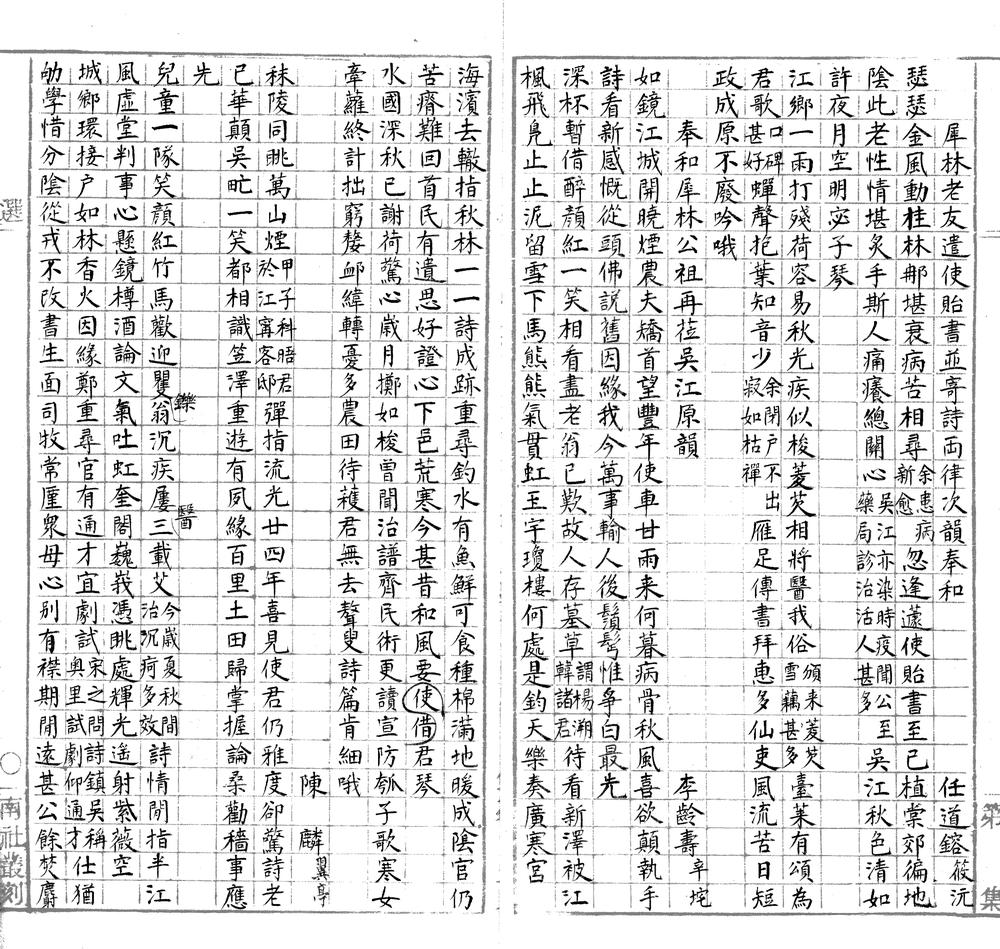 犀林老友遣使貽書並寄詩両律次韻奉和 任道鎔 筱沅
瑟瑟金風動桂林那堪衰病苦相尋余患病新愈忽逢蘧使貽書至已植棠郊徧地
陰此老性情堪炙手斯人痛癢總關心吳江亦染時疫聞公至藥局診治活人甚多吳江秋色清如
許夜月空明宓子琴
江鄉一雨打殘荷容易秋光疾似梭菱芡相將醫我俗頒来菱芡雪藕甚多臺萊有頌為
君歌口碑甚好蟬聲抱葉知音少余閉户不出寂如枯禪雁足傳書拜惠多仙吏風流苦日短
政成原不廢吟哦
奉和犀林公祖再莅吳江原韻 李齡壽 辛垞
如鏡江城開曉煙農夫矯首望豐年使車甘雨来何暮病骨秋風喜欲顛執手
詩看新感慨從頭佛說舊因緣我今萬事輸人後鬚髩惟爭白最先
深杯暫借醉顏紅一笑相看盡老翁已歎故人存墓草謂楊溯韓諸君待看新澤被江
楓飛凫止止泥留雪下馬熊熊氣貫虹玉宇瓊樓何處是鈞天樂奏廣寒宮
第 集
海濱去轍指秋林一一詩成跡重尋釣水有魚鮮可食種棉滿地暖成陰官仍
苦瘠難回首民有遺思好證心下邑荒寒今甚昔和風要使借君琴
水國深秋已謝荷驚心嵗月擲如梭曾聞治譜齊民術更讀宣防瓠子歌寒女
牽蘿終計拙窮嫠卹緯轉憂多農田待穫君無去聱叟詩篇肯細哦
陳麟 翼亭
秣陵同眺萬山煙甲子科晤君於江寗客邸彈指流光廿四年喜見使君仍雅度卻驚詩老
已華顛吳㠶一笑都相識笠澤重遊有夙緣百里土田歸掌握論桑勸穡事應
先
兒童一隊笑顏紅竹馬歡迎矍鑠翁沉疾屢醫三載艾今嵗夏秋間治沉疴多效詩情閒指半江
風虛堂判事心懸鏡樽酒論文氣吐虹奎閣巍峩憑眺處輝光遙射紫薇空
城鄉環接户如林香火因緣鄭重尋官有通才宜劇試宋之問詩鎮吳稱奧里試劇仰通才仕猶
劬學惜分陰從戎不改書生面司牧常厪衆母心别有襟期閒遠甚公餘焚麝
選 〇 南社叢刻